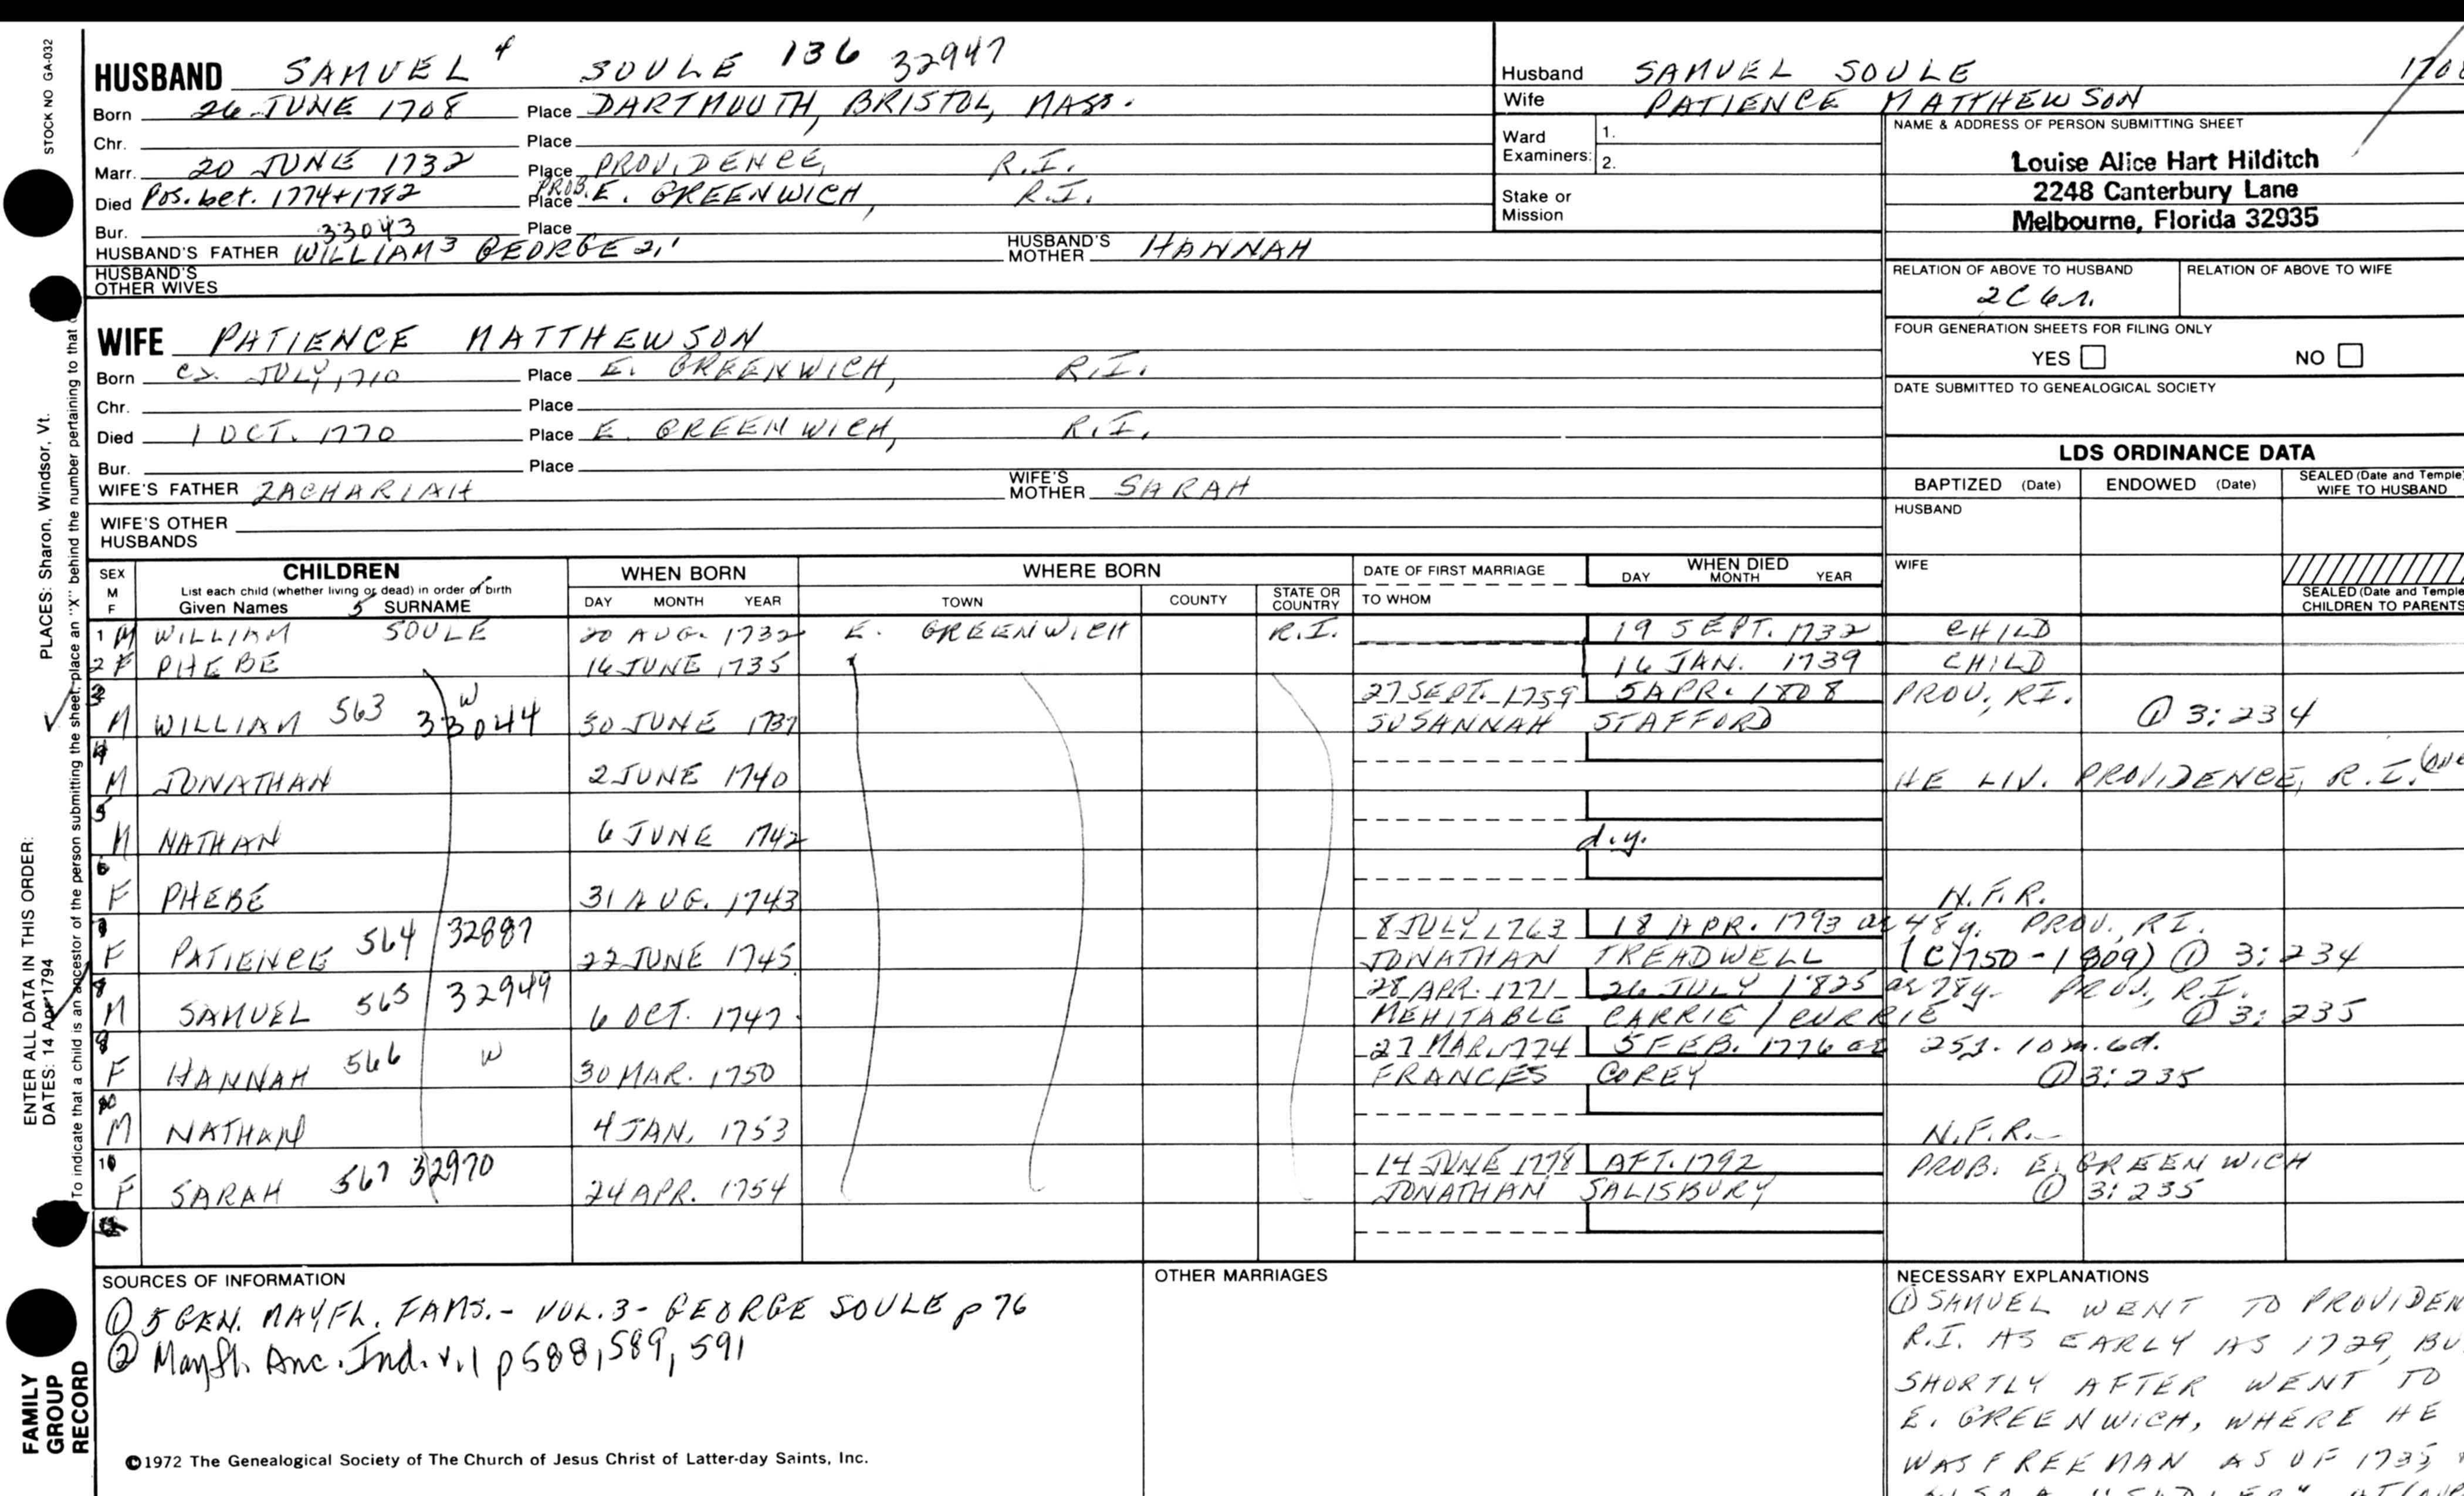 STOCK NO GA-032
HUSBAND SAMUEL 4 SOULE 136 32947
Born 26 JUNE 1708 Place DARTMOUTH, BRISTOL, MASS.
Chr. Place
Marr. 20 JUNE 1732 Place PROVIDENCE, R.I.
Died Pos. bet. 1774+1782 PROB. Place E. GREENWICH, R.I.
Bur. Place
33043
HUSBAND'S FATHER WILLIAM 3 GEORGE 2,1 HUSBAND'S MOTHER HANNAH
HUSBAND'S OTHER WIVES
WIFE PATIENCE MATTHEWSON
Born ca. JULY, 1710 Place E. GREENWICH, R.I.
Chr. Place
Died 1 OCT. 1770 Place E. GREENWICH, R.I.
Bur. Place
WIFE'S FATHER ZACHARIAH WIFE'S MOTHER SARAH
WIFE'S OTHER HUSBANDS
Husband SAMUEL SOULE
Wife PATIENCE MATTHEWSON
Ward Examiners: 1.
2.
Stake or Mission
NAME & ADDRESS OF PERSON SUBMITTING SHEET
Louise Alice Hart Hilditch
2248 Canterbury Lane
Melbourne, Florida 32935
RELATION OF ABOVE TO HUSBAND RELATION OF ABOVE TO WIFE
2C 6r.
FOUR GENERATION SHEETS FOR FILING ONLY
YES NO
DATE SUBMITTED TO GENEALOGICAL SOCIETY
LDS ORDINANCE DATA
BAPTIZED (Date) ENDOWED (Date) SEALED (Date and Temple) WIFE TO HUSBAND
HUSBAND
WIFE
SEALED (Date and Temple) CHILDREN TO PARENTS
SEX M F CHILDREN WHEN BORN WHERE BORN DATE OF FIRST MARRIAGE WHEN DIED
List each child (whether living or dead) in order of birth
Given Names 5 SURNAME DAY MONTH YEAR TOWN COUNTY STATE OR COUNTRY TO WHOM DAY MONTH YEAR
1 M WILLIAM SOULE 20 AUG. 1732 E. GREENWICH R.I. 19 SEPT. 1732 CHILD
2 F PHEBE 16 JUNE 1735 16 JAN. 1739 CHILD
3 27 SEPT. 1759 5 APR. 1808 PROV., RI.
M WILLIAM 563 W 33044 30 JUNE 1737 SUSANNAH STAFFORD ① 3:234
4
M JONATHAN 2 JUNE 1740 HE LIV. PROVIDENCE, R.I.
5
M NATHAN 6 JUNE 1742 d.y.
6
F PHEBE 31 AUG. 1743 N.F.R.
8 JULY 1763 18 APR. 1793 ae 48 y. PROV., RI.
F PATIENCE 564 32887 22 JUNE 1745 JONATHAN TREADWELL (C1750-1809) ① 3:234
28 APR. 1771 26 JULY 1825 ae 78y. PROV., R.I.
M SAMUEL 565 32949 6 OCT. 1747 MEHITABLE CARRIE/CURRIE ① 3:235
27 MAR. 1774 5 FEB. 1776 ae 25y. 10m. 6d.
F HANNAH 566 W 30 MAR. 1750 FRANCES COREY ① 3:235
M NATHAN 4 JAN. 1753 N.F.R.
10 14 JUNE 1778 AFT. 1792 PROB. E. GREENWICH
F SARAH 567 32970 24 APR. 1754 JONATHAN SALISBURY ① 3:235
SOURCES OF INFORMATION
① 5 GEN. MAYFL. FAMS. - VOL. 3 - GEORGE SOULE p 76
② Mayfl. Anc. Ind. v.1 p588, 589, 591
OTHER MARRIAGES
NECESSARY EXPLANATIONS
① SAMUEL WENT TO PROVIDEN
R.I. AS EARLY AS 1729, BU
SHORTLY AFTER WENT TO
E. GREENWICH, WHERE HE
WAS FREEMAN AS OF 1735
©1972 The Genealogical Society of The Church of Jesus Christ of Latter-day Saints, Inc.
PLACES: Sharon, Windsor, Vt.
To indicate that a child is an ancestor of the person submitting the sheet, place an "X" behind the number pertaining to that
ENTER ALL DATA IN THIS ORDER:
DATES: 14 Apr 1794
FAMILY GROUP RECORD